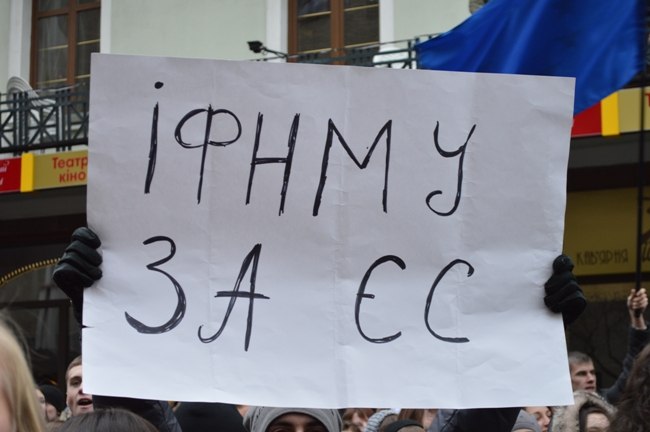 ІФНМУ
ЗА ЄС
Театр
кіно
КАВ'ЯРНЯ